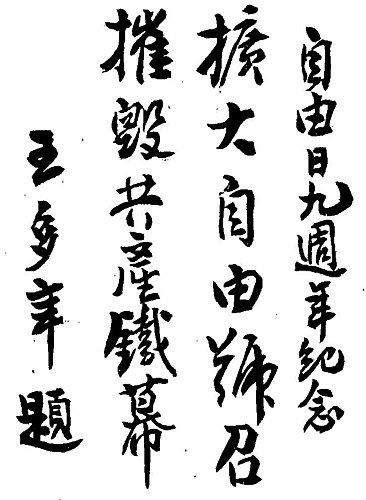 自由日九週年紀念
擴大自由號召
摧毀共產鐵幕
王多年題